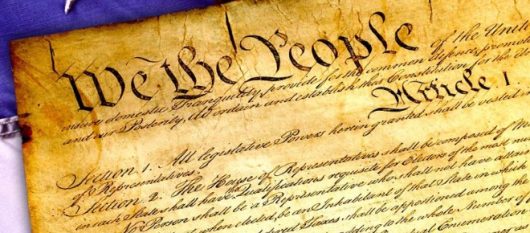 We the People of the Unite
insure domestic Tranquility, provide for the common defence, promote
and our Posterity, do ordain and establish this Constitution for the
Article I
Section 1. All legislative Powers herein granted shall be vested
of Representatives.
Section 2. The House of Representatives shall be composed of
in each State shall have Qualifications requisite for Electors of the most
No Person shall be a Representative who shall not have
when elected, be an Inhabitant of that State in which
Taxes shall be apportioned among the
whole Number
Enumeration